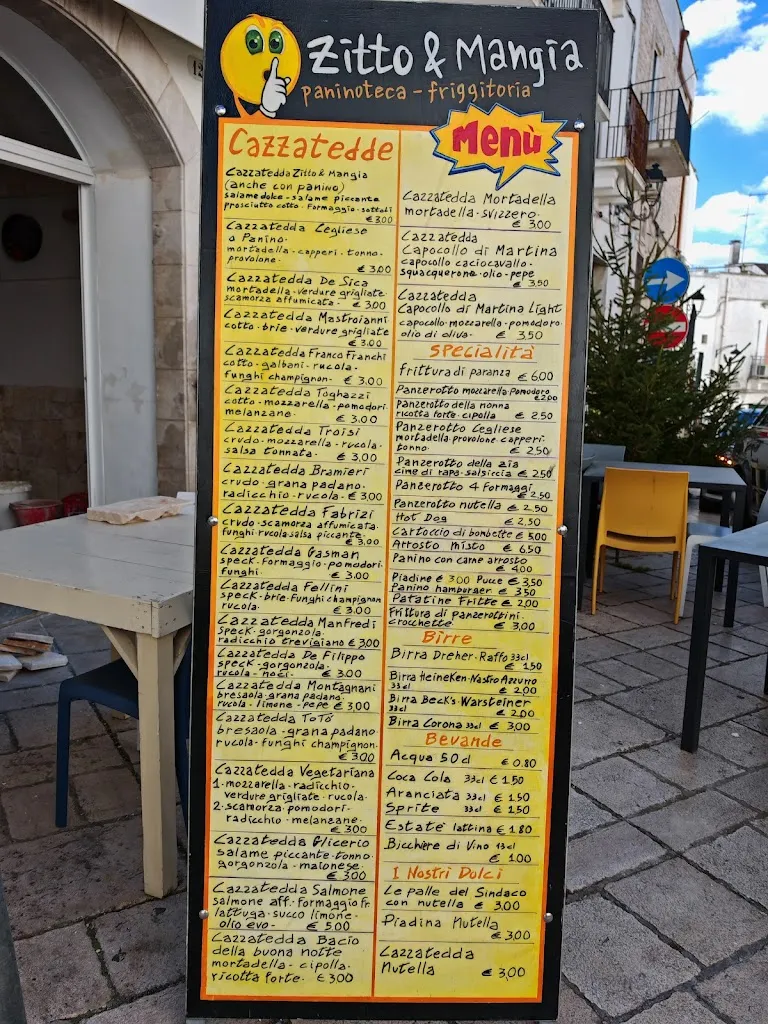 Zitto & Mangia
paninoteca - friggitoria
Cazzatedde
Cazzatedda Zitto & Mangia
(anche con panino)
salame dolce - salame piccante
prosciutto cotto - formaggio - sottoli
€ 3.00
Cazzatedda Cegliese
o Panino.
mortadella - capperi - tonno -
provolone.
€ 3,00
Cazzatedda De Sica
mortadella - verdure grigliate
scamorza affumicata - € 3.00
Cazzatedda Mastroianni
cotto - brie - verdure grigliate
€ 3.00
Cazzatedda Franco Franchi
cotto - galbani - rucola -
funghi champignon - € 3.00
Cazzatedda Toghazzi
cotto - mozzarella - pomodori
melanzane. € 3.00
Cazzatedda Troisi
crudo - mozzarella - rucola -
salsa tonnata. € 3,00
Cazzatedda Bramieri
crudo - grana padano
radicchio - rucola - € 3,00
Cazzatedda Fabrizi
crudo - scamorza affumicata
funghi - rucola - salsa piccante
€ 3.00
Cazzatedda Gasman
speck - formaggio - pomodori
funghi. € 3.00
Cazzatedda Fellini
speck - brie - funghi champignon
rucola. € 3.00
Cazzatedda Manfredi
speck - gorgonzola -
radicchio trevigiano € 3,00
Cazzatedda De Filippo
speck - gorgonzola -
rucola - noci - € 3.00
Cazzatedda Montagnani
bresaola - grana padano
rucola - limone - pepe € 3,00
Cazzatedda Totò
bresaola - grana padano
rucola - funghi champignon -
€ 3.00
Cazzatedda Vegetariana
1 - mozzarella - radicchio -
verdure grigliate - rucola -
2 - scamorza - pomodori -
radicchio - melanzane -
€ 3.00
Cazzatedda Glicerio
salame piccante - tonno -
gorgonzola - maionese.
€ 3.00
Cazzatedda Salmone
salmone aff. - formaggio fr.
lattuga - succo limone -
olio evo - € 5.00
Cazzatedda Bacio
della buona notte
mortadella - cipolla -
ricotta forte - € 3.00
Menù
Cazzatedda Mortadella
mortadella - svizzero -
€ 3.00
Cazzatedda
Capocollo di Martina
capocollo caciocavallo -
squacquerone - olio - pepe
€ 3,50
Cazzatedda
Capocollo di Martina Light
capocollo - mozzarella - pomodoro
olio di oliva - € 3,50
Specialità
frittura di paranza € 6.00
Panzerotto mozzarella - Pomodoro
€ 2,00
Panzerotto della nonna
ricotta forte - cipolla € 2.50
Panzerotto Cegliese
mortadella - provolone - capperi -
tonno - € 2,50
Panzerotto della zia
cime di rapa - salsiccia € 2,50
Panzerotto 4 Formaggi
€ 2,50
Panzerotto nutella € 2.50
Hot Dog € 2,50
Cartoccio di bombette € 5.00
Arrosto misto € 6,50
Panino con carne arrosto
€ 4.00
Piadine € 3.00 Pucce € 3,50
Panino hamburger € 3.50
Patatine Fritte € 2,00
Frittura di panzerottini
crocchette € 3,00
Birre
Birra Dreher - Raffo 33cl
€ 1.50
Birra Heineken - Nastro Azzurro
33cl € 2,00
Birra Beck's - Warsteiner
33cl € 2,00
Birra Corona 33cl € 3,00
Bevande
Acqua 50cl € 0.80
Coca Cola 33cl € 1.50
Aranciata 33cl € 1.50
Sprite 33cl € 1.50
Estatè lattina € 1.80
Bicchiere di Vino 19cl
€ 1.00
I Nostri Dolci
Le palle del Sindaco
con nutella € 3,00
Piadina Nutella
€ 3,00
Cazzatedda
Nutella € 3,00